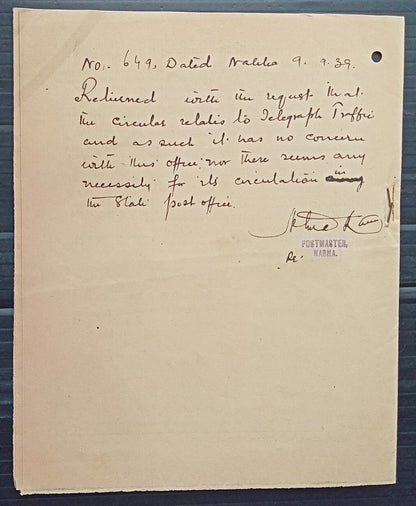 No. 649, Dated Nabha 9. 9. 39.
Returned with the request that
the circular relates to Telegraph Traffic
and as such it has no concern
with this office; nor there seems any
necessity for its circulation in
the State post office.
POSTMASTER,
NABHA.